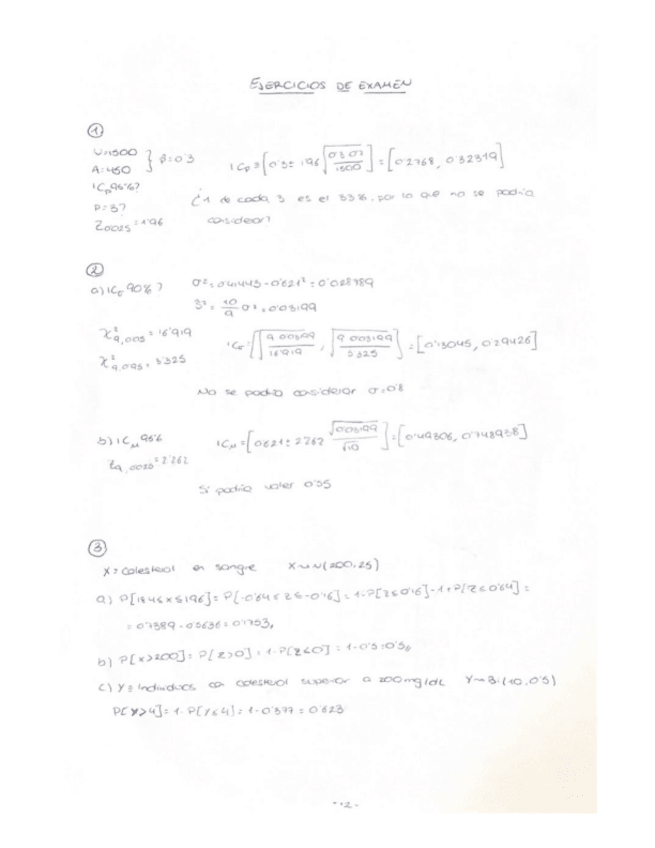 EJERCICIOS DE EXAMEN
①
N=1500
A=450
p̂=0'3
IC_p 95%?
p=3?
Z_0'025=1'96
IC_p=[0'3±1'96√(0'3·0'7/1500)]=[0'2768, 0'32319]
¿1 de cada 3 es el 33%, por lo que no se podría
considerar?
②
a) IC_σ 90%?
σ²=0'41443-0'621²=0'028789
S²=10/9 σ²=0'03199
χ²_9,0'05=16'919
χ²_9,0'95=3'325
IC_σ=[√(9·0'03199/16'919), √(9·0'03199/3'325)]=[0'13045, 0'29426]
No se podría considerar σ=0'8
b) IC_μ 95%
t_9,0'025=2'262
IC_μ=[0'621±2'262 √0'03199/√10]=[0'49306, 0'748938]
Sí podría valer 0'55
③
X≡Colesterol en sangre X~N(200,25)
a) P[184≤X≤196]=P[-0'64≤Z≤-0'16]=1-P[Z≤0'16]-1+P[Z≤0'64]=
=0'7389-0'5636=0'1753,
b) P[X>200]=P[Z>0]=1-P[Z≤0]=1-0'5=0'5,
c) Y≡Individuos con colesterol superior a 200mg/dL Y~Bi(10,0'5)
P[Y>4]=1-P[Y≤4]=1-0'377=0'623
-12-